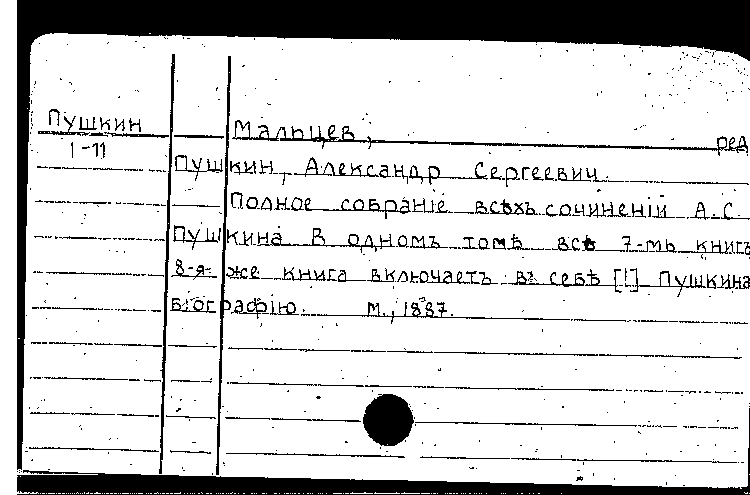 Пушкин
1-11
Мальцев, ред
Пушкин, Александр Сергеевич.
Полное собраніе всѣхъ сочиненій А.С.
Пушкина в одномъ томѣ всѣ 7-мь книгъ
8-я же книга включаетъ въ себѣ [!] Пушкина
біографію. М., 1887.